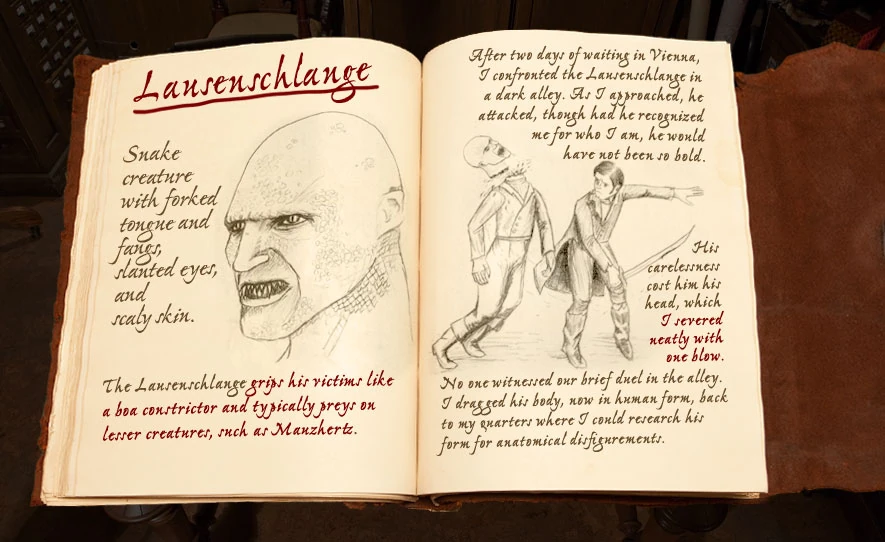 Lausenschlange
Snake
creature
with forked
tongue and
fangs,
slanted eyes,
and
scaly skin.
The Lausenschlange grips his victims like
a boa constrictor and typically preys on
lesser creatures, such as Mauzhertz.
After two days of waiting in Vienna,
I confronted the Lausenschlange in
a dark alley. As I approached, he
attacked, though had he recognized
me for who I am, he would
have not been so bold.
His
carelessness
cost him his
head, which
I severed
neatly with
one blow.
No one witnessed our brief duel in the alley.
I dragged his body, now in human form, back
to my quarters where I could research his
form for anatomical disfigurements.